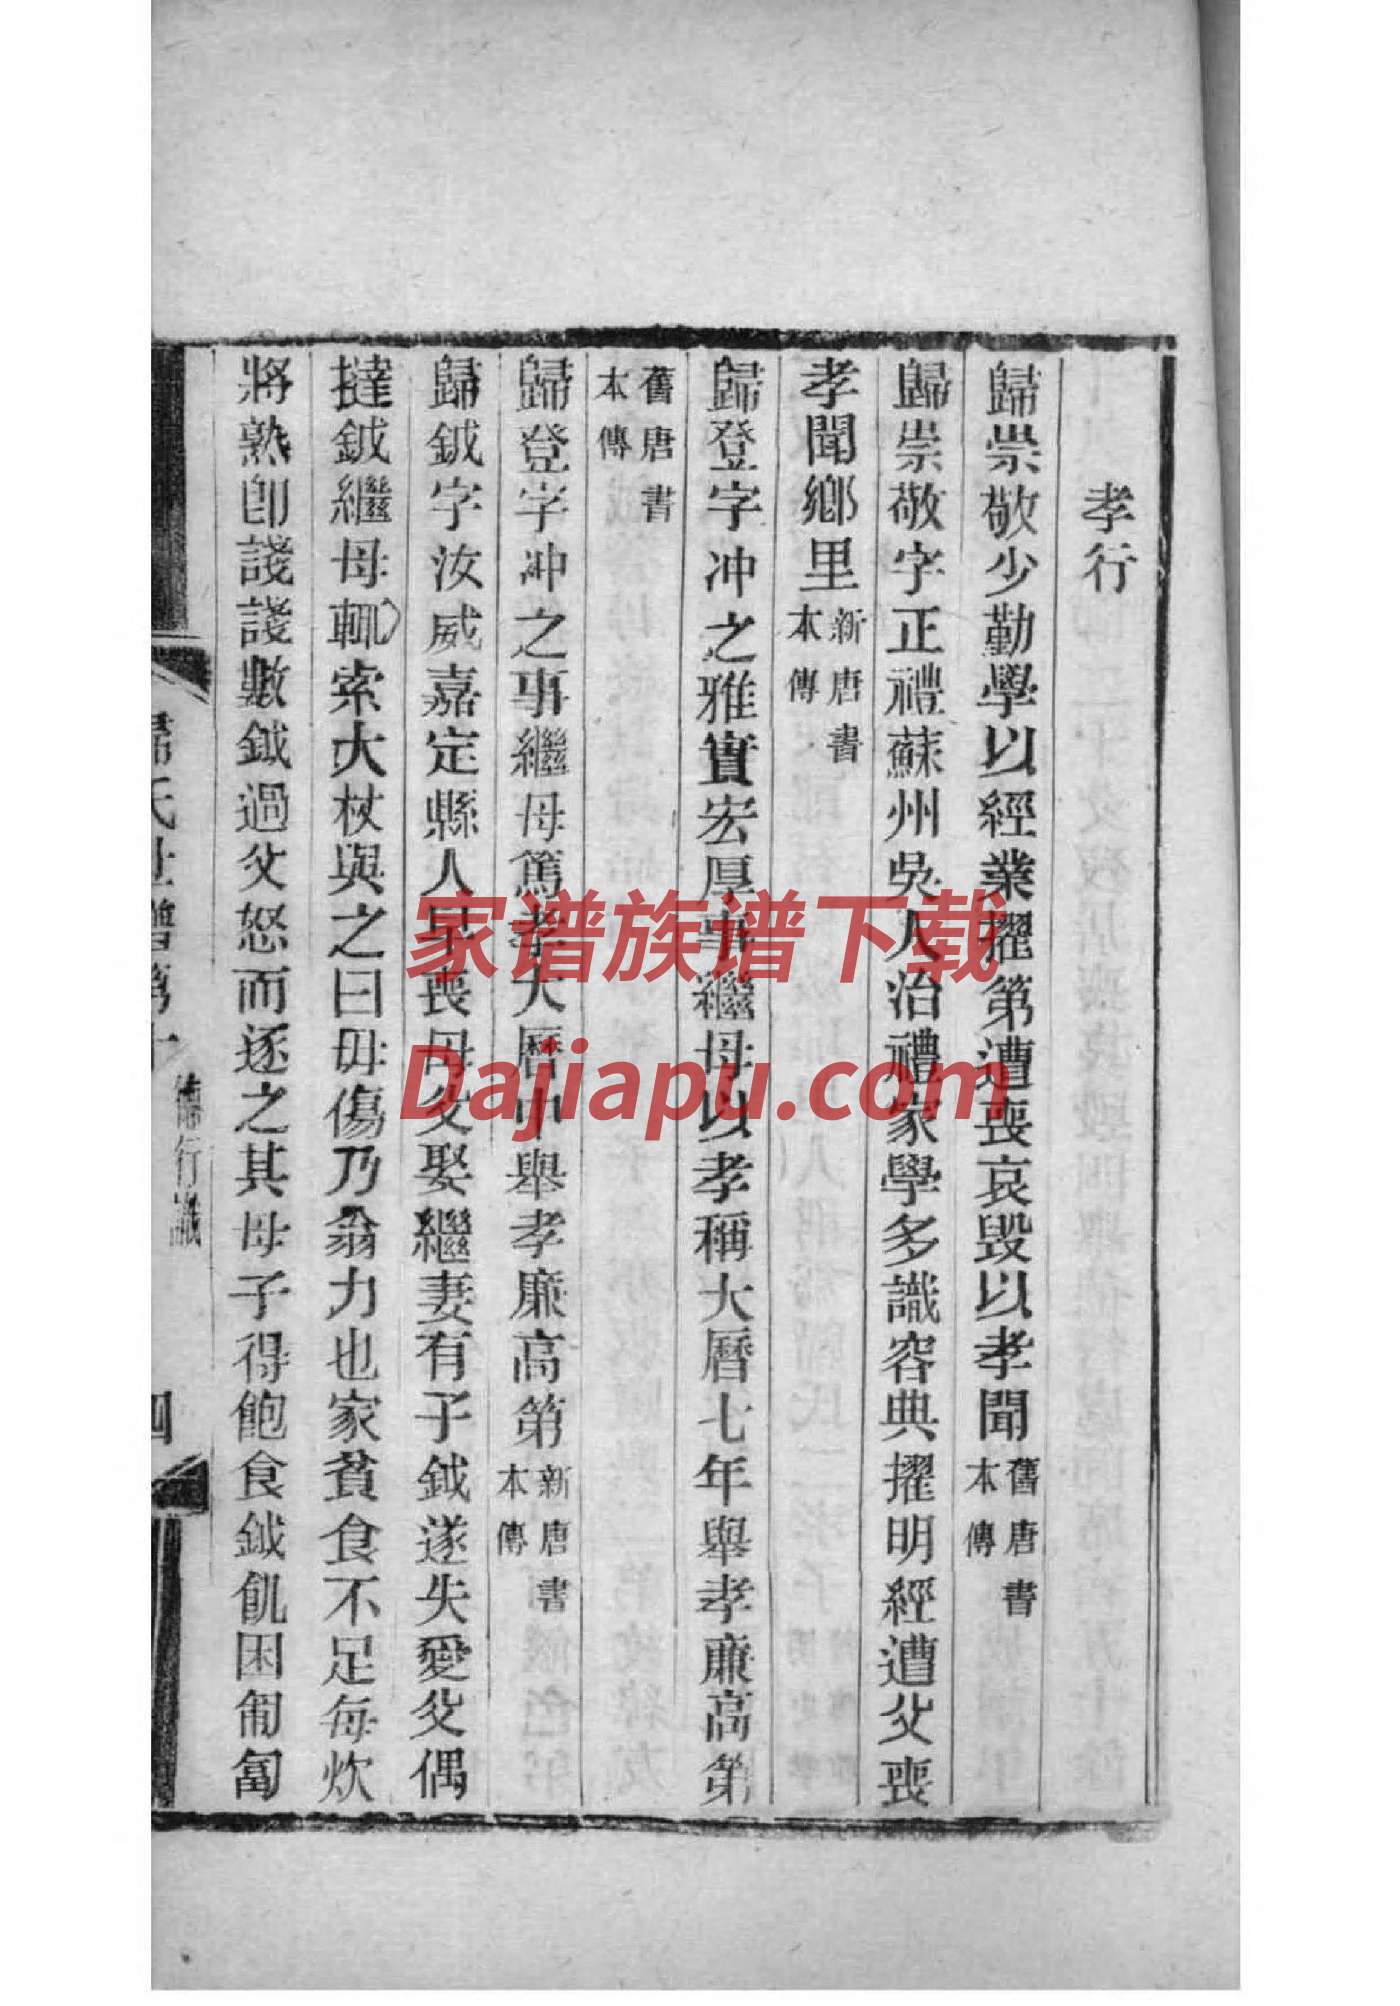 孝行
歸崇敬少勤學以經業擢第遭喪哀毀以孝聞舊唐書本傳
歸崇敬字正禮蘇州吳人治禮家學多識容典擢明經遭父喪
孝聞鄉里新唐書本傳
歸登字冲之雅實宏厚事繼母以孝稱大曆七年舉孝廉高第
舊唐書本傳
歸登字冲之事繼母篤孝大曆中舉孝廉高第新唐書本傳
歸鉞字汝威嘉定縣人早喪母父娶繼妻有子鉞遂失愛父偶
撻鉞繼母輒索大杖與之曰毋傷乃翁力也家貧食不足每炊
將熟卽諓諓數鉞過父怒而逐之其母子得飽食鉞飢困匍匐
歸氏世譜第十
德行識
四
家谱族谱下载
Dajiapu.com